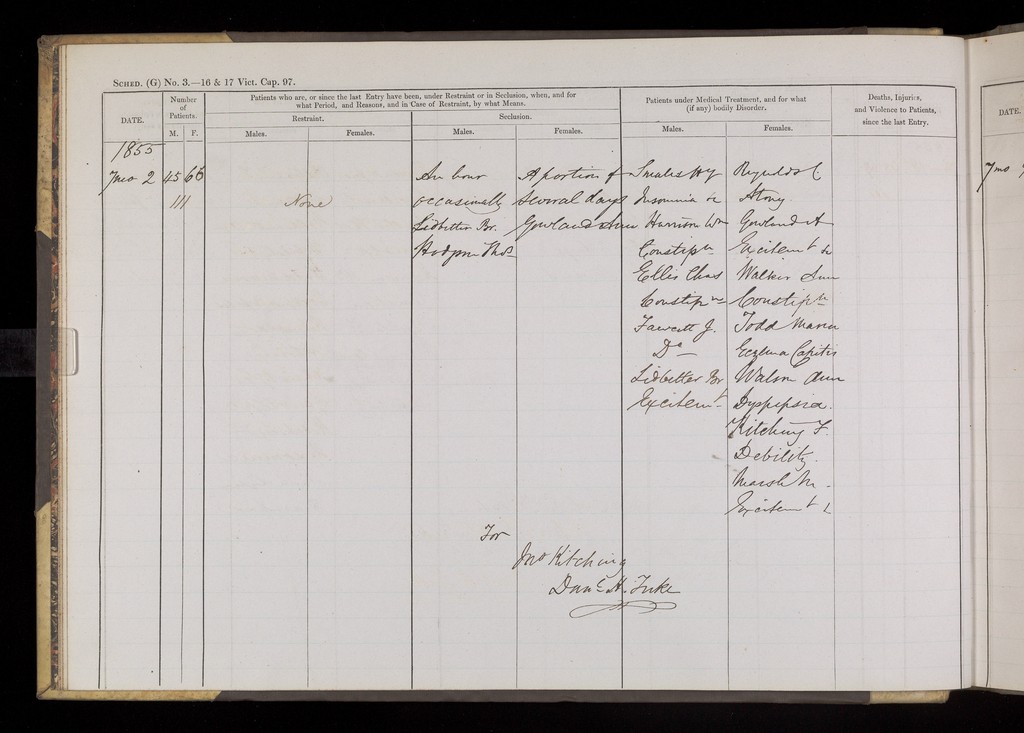 SCHED. (G) No. 3.—16 & 17 Vict. Cap. 97.
DATE.
Number of Patients.
M. F.
Patients who are, or since the last Entry have been, under Restraint or in Seclusion, when, and for
what Period, and Reasons, and in Case of Restraint, by what Means.
Restraint.
Males. Females.
Seclusion.
Males. Females.
Patients under Medical Treatment, and for what
(if any) bodily Disorder.
Males. Females.
Deaths, Injuries,
and Violence to Patients,
since the last Entry.
1855
7mo 2 45 66
111
None
An hour
occasionally
Lidbetter Br.
Hodgson Thos
A portion of
several days
Gowland Ann
Smales Hy
Insomnia &c
Harrison Wm
Constipn
Ellis Chas
Constipn
Fawcett J.
Do
Lidbetter Br
Excitemt
Reynolds C
Gowland A
Excitemt &
Walker Ann
Constipn
Todd Maria
Eczema Capitis
Watson Ann
Dyspepsia.
Kitching F.
Debility.
Marsh M.
Excitemt &
For
Jno Kitching
Danl H. Tuke
DATE.
7mo